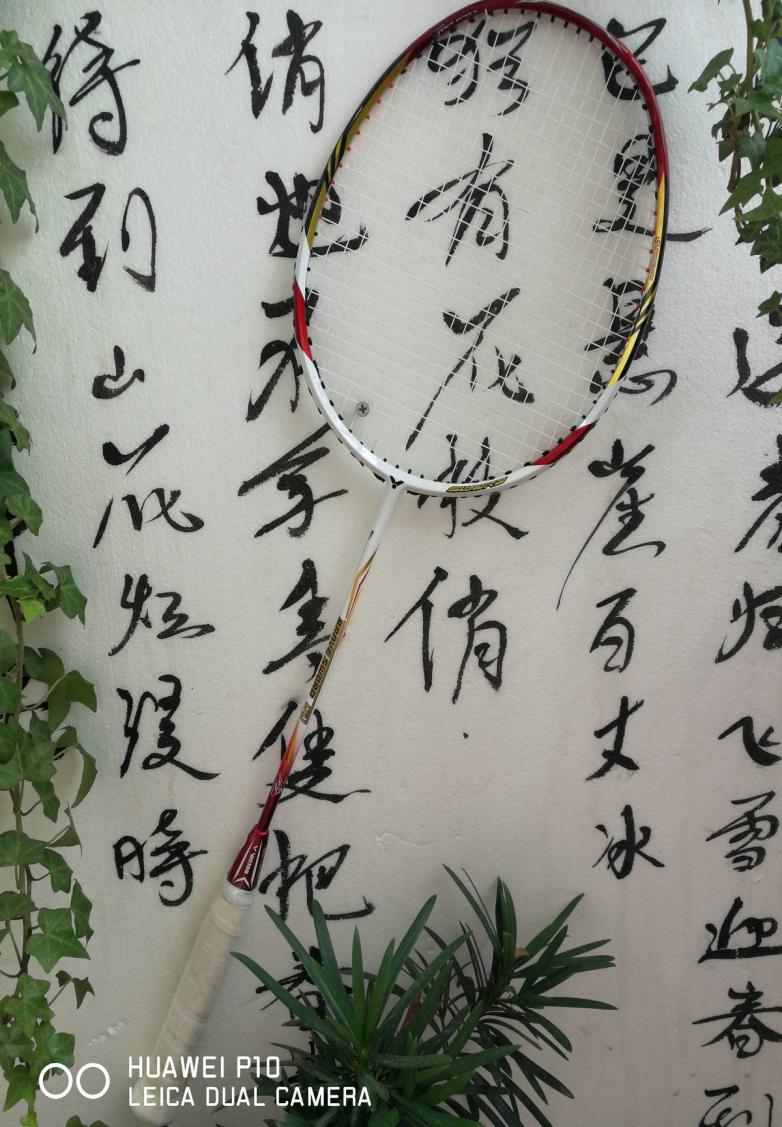 送春归飞雪迎春到
已是悬崖百丈冰
犹有花枝俏.
俏也不争春健把春
待到山花烂漫時
SWORD
BRAVE SWORD
VICTOR
HUAWEI P10
LEICA DUAL CAMERA